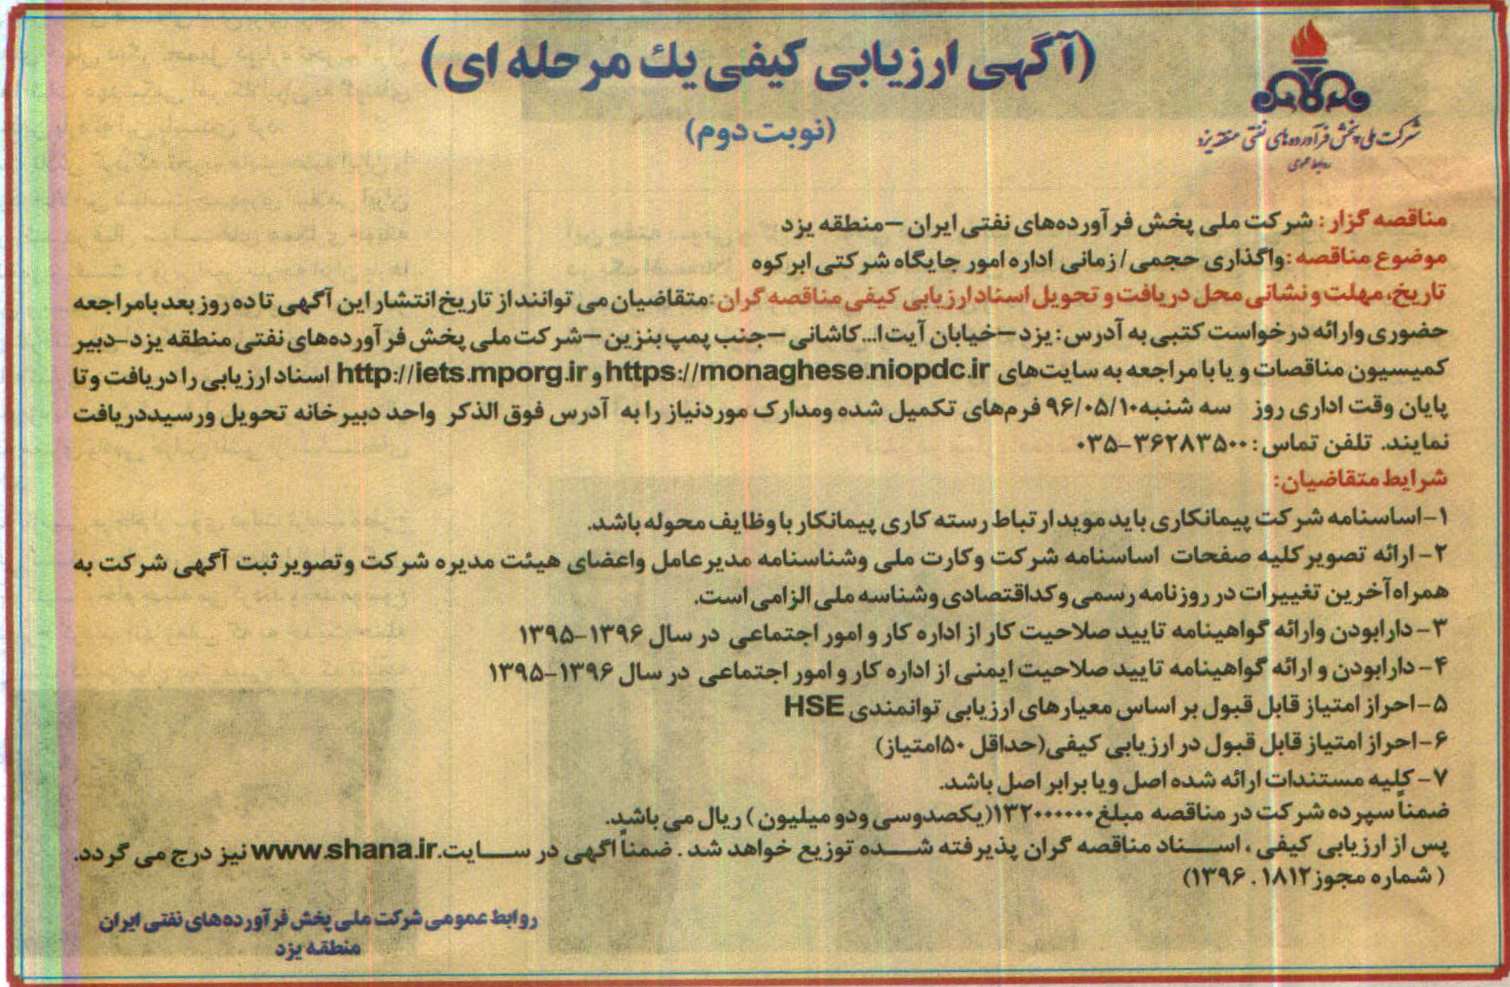 (آگهی ارزیابی کیفی یك مرحله ای)
(نوبت دوم)
شرکت ملی پخش فرآورده‌های نفتی منطقه یزد
روابط عمومی
مناقصه گزار: شرکت ملی پخش فرآورده‌های نفتی ایران –منطقه یزد
موضوع مناقصه:واگذاری حجمی/زمانی اداره امور جایگاه شرکتی ابرکوه
تاریخ، مهلت و نشانی محل دریافت و تحویل اسناد ارزیابی کیفی مناقصه گران:متقاضیان می توانند از تاریخ انتشار این آگهی تا ده روز بعد بامراجعه
حضوری وارائه درخواست کتبی به آدرس: یزد –خیابان آیت ا... کاشانی –جنب پمپ بنزین –شرکت ملی پخش فرآورده‌های نفتی منطقه یزد-دبیر
کمیسیون مناقصات و یا با مراجعه به سایت‌های https://monaghese.niopdc.ir و http://iets.mporg.ir اسناد ارزیابی را دریافت وتا
پایان وقت اداری روز سه شنبه۹۶/۰۵/۱۰ فرم‌های تکمیل شده ومدارک موردنیاز را به آدرس فوق الذکر واحد دبیرخانه تحویل ورسیددریافت
نمایند. تلفن تماس: ۳۶۲۸۳۵۰۰-۰۳۵
شرایط متقاضیان:
۱-اساسنامه شرکت پیمانکاری باید موید ارتباط رسته کاری پیمانکار با وظایف محوله باشد.
۲- ارائه تصویر کلیه صفحات اساسنامه شرکت وکارت ملی وشناسنامه مدیرعامل واعضای هیئت مدیره شرکت وتصویر ثبت آگهی شرکت به
همراه آخرین تغییرات در روزنامه رسمی وکداقتصادی وشناسه ملی الزامی است.
۳- دارابودن وارائه گواهینامه تایید صلاحیت کار از اداره کار و امور اجتماعی در سال ۱۳۹۶-۱۳۹۵
۴- دارابودن و ارائه گواهینامه تایید صلاحیت ایمنی از اداره کار و امور اجتماعی در سال ۱۳۹۶-۱۳۹۵
۵-احراز امتیاز قابل قبول بر اساس معیارهای ارزیابی توانمندی HSE
۶-احراز امتیاز قابل قبول در ارزیابی کیفی(حداقل ۵۰امتیاز)
۷- کلیه مستندات ارائه شده اصل ویا برابر اصل باشد.
ضمناً سپرده شرکت در مناقصه مبلغ۱۳۲۰۰۰۰۰۰(یکصدوسی ودو میلیون) ریال می باشد.
پس از ارزیابی کیفی ، اسناد مناقصه گران پذیرفته شده توزیع خواهد شد . ضمناً اگهی در سایت.www.shana.ir نیز درج می گردد.
( شماره مجوز۱۸۱۲ . ۱۳۹۶)
روابط عمومی شرکت ملی پخش فرآورده‌های نفتی ایران
منطقه یزد